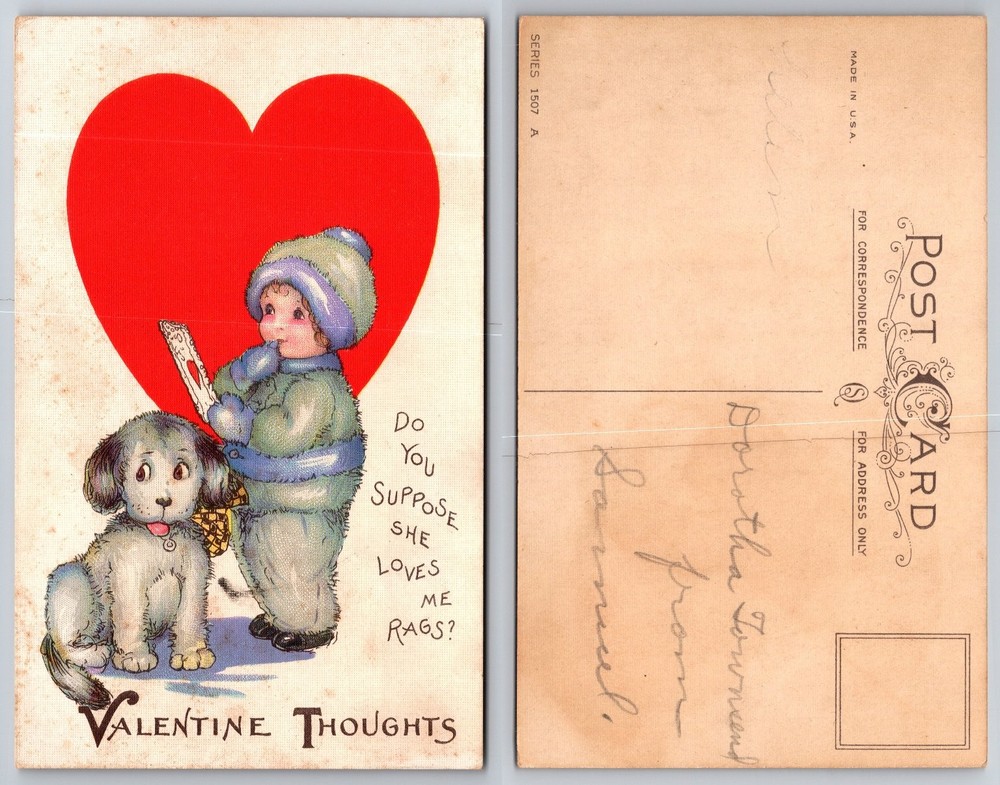 DO
YOU
SUPPOSE
SHE
LOVES
ME
RAGS?
VALENTINE THOUGHTS
POST CARD
MADE IN U.S.A.
FOR CORRESPONDENCE
FOR ADDRESS ONLY
SERIES 1507 A
Dorotha Townsend
from
Samuel.